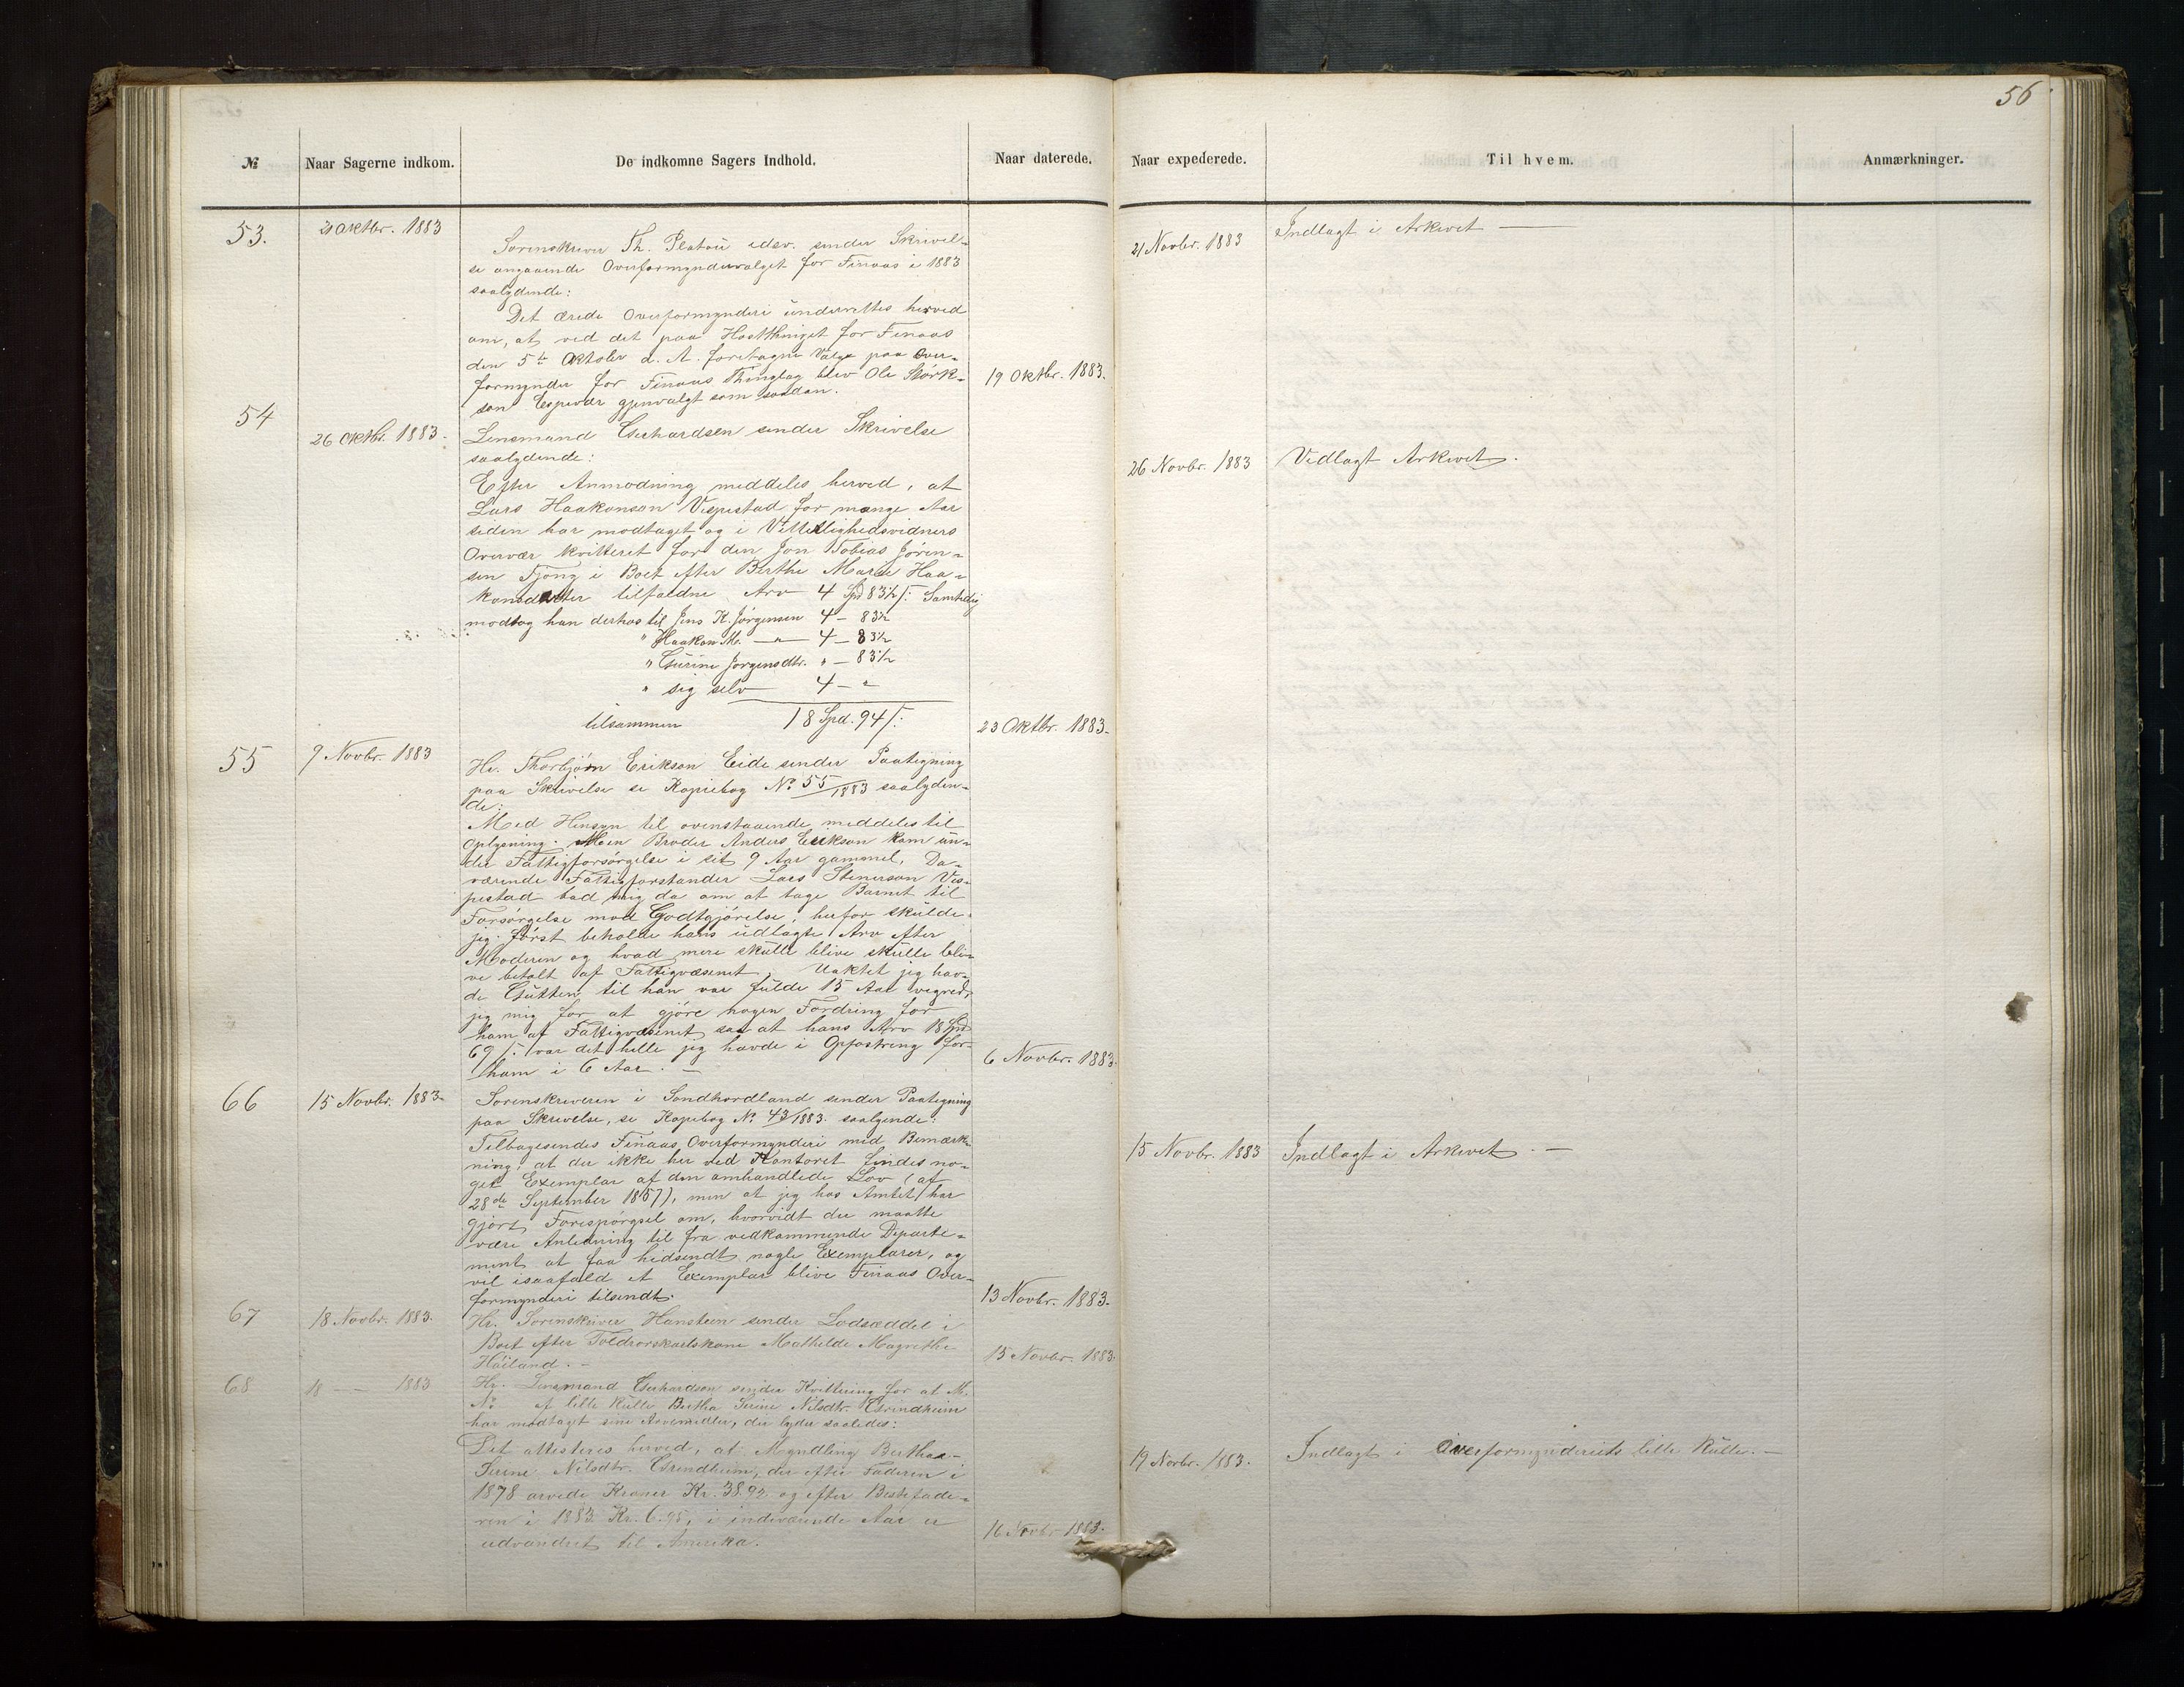 56
№ Naar Sagerne indkom. De indkomne Sagers Indhold. Naar daterede. Naar expederede. Til hvem. Anmærkninger.
53. 21 Oktbr. 1883
Sorenskriver Th. Platou edsv. sender Skrivel-
se angaaende Overformyndervalget for Finaas i 1883
saalydende:
Det ærede Overformynderi underrettes herved
om, at ved det paa Høstthinget for Finaas
den 5te Oktober d. A. foretagne Valg paa Over-
formynder for Finaas Thinglag blev Ole Størk-
son Espevær gjenvalgt som saadan.
19 Oktbr. 1883.
21 Novbr. 1883 Indlagt i Arkivet
54
26 Oktbr. 1883. Lensmand Gerhardsen sender Skrivelse
saalydende:
Efter Anmodning meddeles herved, at
Lars Haakonson Vespestad for mange Aar
siden har modtaget og i Vitterlighedsvidners
Overvær kvitteret for den Jon Tobias Jören-
sen Fjöng i Boet efter Berthe Marie Haa-
konsdatter tilfaldne Arv 4 Spd 83½ /: Samtidig
modtog han derhos til Jens K. Jørgensen 4 - 83½
" Haakon M. — " — 4 - 83½
" Gurine Jorgensdtr. " - 83½
" sig selv 4 - "
tilsammen 18 Spd. 94 /:
23 Oktbr. 1883.
26 Novbr. 1883 Vedlagt Arkivet.
55 9 Novbr. 1883
Hr. Thorbjörn Erikson Eide sender Paategning
paa Skrivelse se Kopiebog No 55/1883 saalyden-
de:
Med Hensyn til ovenstaaende meddeles til
Oplysning. Min Broder Anders Erikson kom un-
der Fattigforsörgelse i sit 9 Aar gammel, Da-
værende Fattigforstander Lars Stenerson Ves-
pestad bad mig da om at tage Barnet til
Forsörgelse mod Godtgjörelse, herfor skulde
jeg först beholde hans udlagte Arv efter
Moderen og hvad mere skulle blive skulle bli-
ve betalt af Fattigvæsenet, Uaktet jeg hav-
de Gutten til han var fulde 15 Aar vegred
jeg mig for at gjöre nogen Fordring for
ham af Fattigvæsenet saa at hans Arv 18 Spd
69 /: var det hele jeg havde i Opfostring for
ham i 6 Aar. —
6 Novbr. 1883.
66 15 Novbr. 1883.
Sorenskriveren i Söndhordland sender Paategning
paa Skrivelse, se Kopiebog No 43/1883. saalydende:
Tilbagesendes Finaas Overformynderi med Bemærk-
ning, at der ikke her ved Kontoret findes no-
get Exemplar af den omhandlede Lov (af
28de September 1857), men at jeg hos Amtet har
gjort Forespörgsel om, hvorvidt der maatte
være Anledning til fra vedkommende Departe-
ment at faa hidsendt nogle Exemplarer, og
vil isaafald et Exemplar blive Finaas Over-
formynderi tilsendt.
13 Novbr. 1883.
15 Novbr. 1883 Indlagt i Arkivet. —
67 18 Novbr. 1883.
Hr. Sorenskriver Hansteen sender Lodseddel i
Boet efter Toldrorskarlskone Mathilde Magrethe
Höiland. —
15 Novbr. 1883.
68 18 — 1883
Hr. Lensmand Gerhardson sender Kvittering for at M.
No af lille Rulle Bertha Serine Nilsdtr. Grindheim
har modtaget sine Arvemidler, der lyder saaledes:
Det attesteres herved, at Myndling Bertha-
Serine Nilsdtr. Grindheim, der efter Faderen i
1878 arvede Kroner Kr. 38.92 og efter Bestefade-
ren i 1883 Kr. 6.95, i indeværende Aar er
udvandret til Amerika.
16 Novbr 1883.
19 Novbr. 1883. Indlagt i Overformynderiets lille Rulle. —